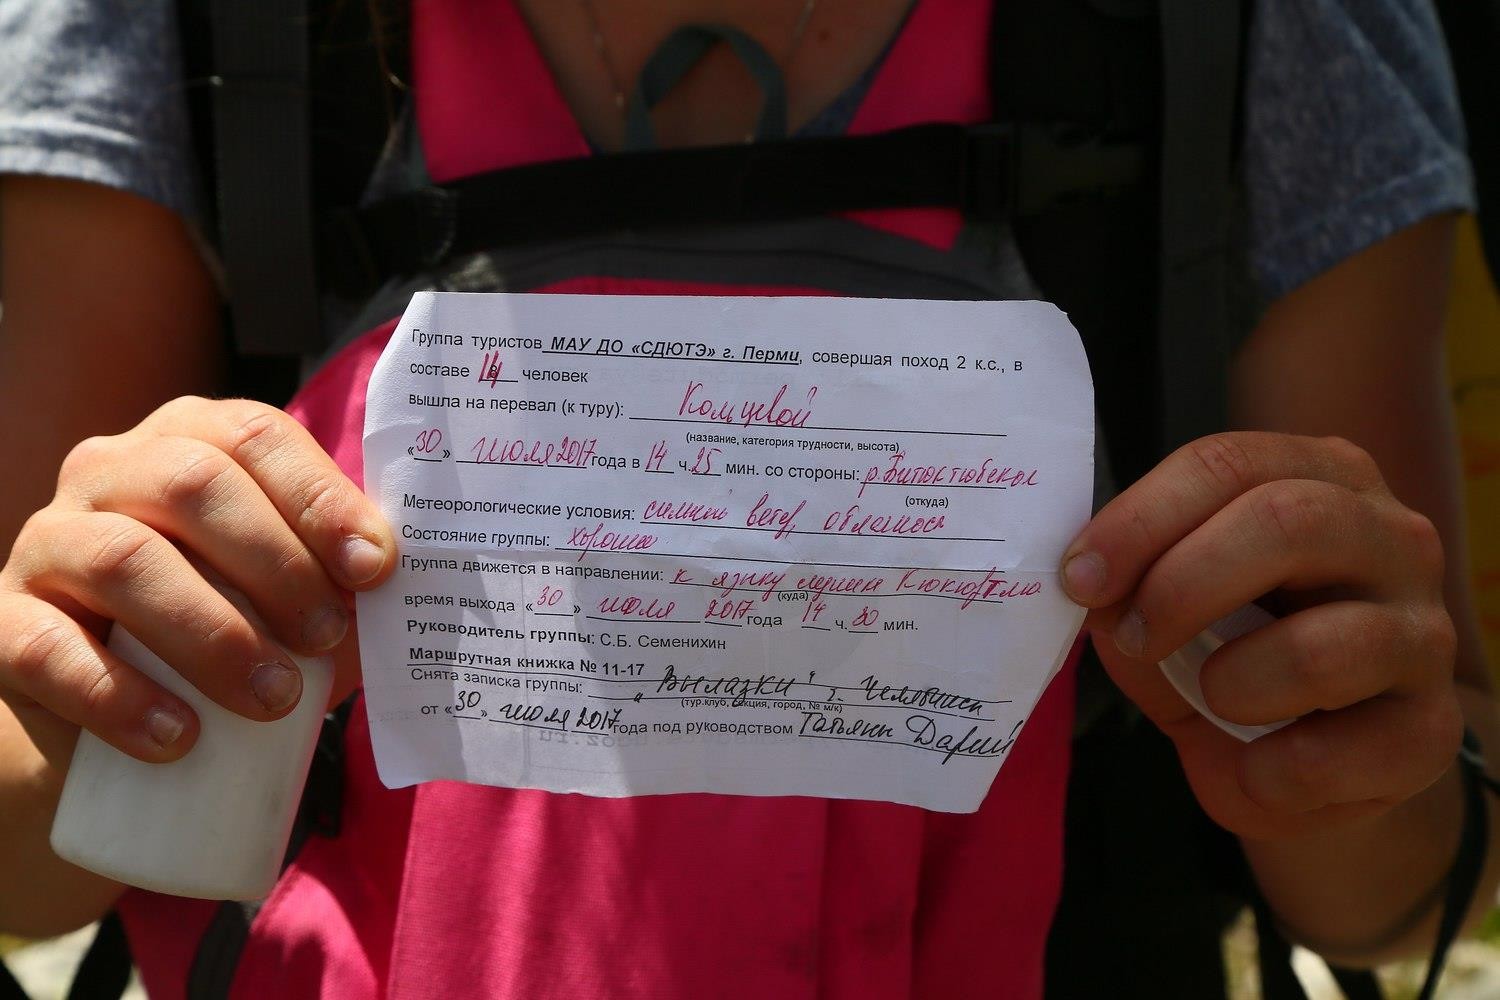 Группа туристов МАУ ДО «СДЮТЭ» г. Перми, совершая поход 2 к.с., в
составе 14 человек
вышла на перевал (к туру): Кольцевой
(название, категория трудности, высота)
«30» июля 2017 года в 14 ч. 25 мин. со стороны: р.
(откуда)
Метеорологические условия: сильный ветер, облачност
Состояние группы: хорошее
Группа движется в направлении: к языку ледника
(куда)
время выхода «30» июля 2017 года 14 ч. 30 мин.
Руководитель группы: С.Б. Семенихин
Маршрутная книжка № 11-17
Снята записка группы: "Вылазки" г. Челябинск
(тур.клуб, секция, город, № м/к)
от «30» июля 2017 года под руководством Татьяны